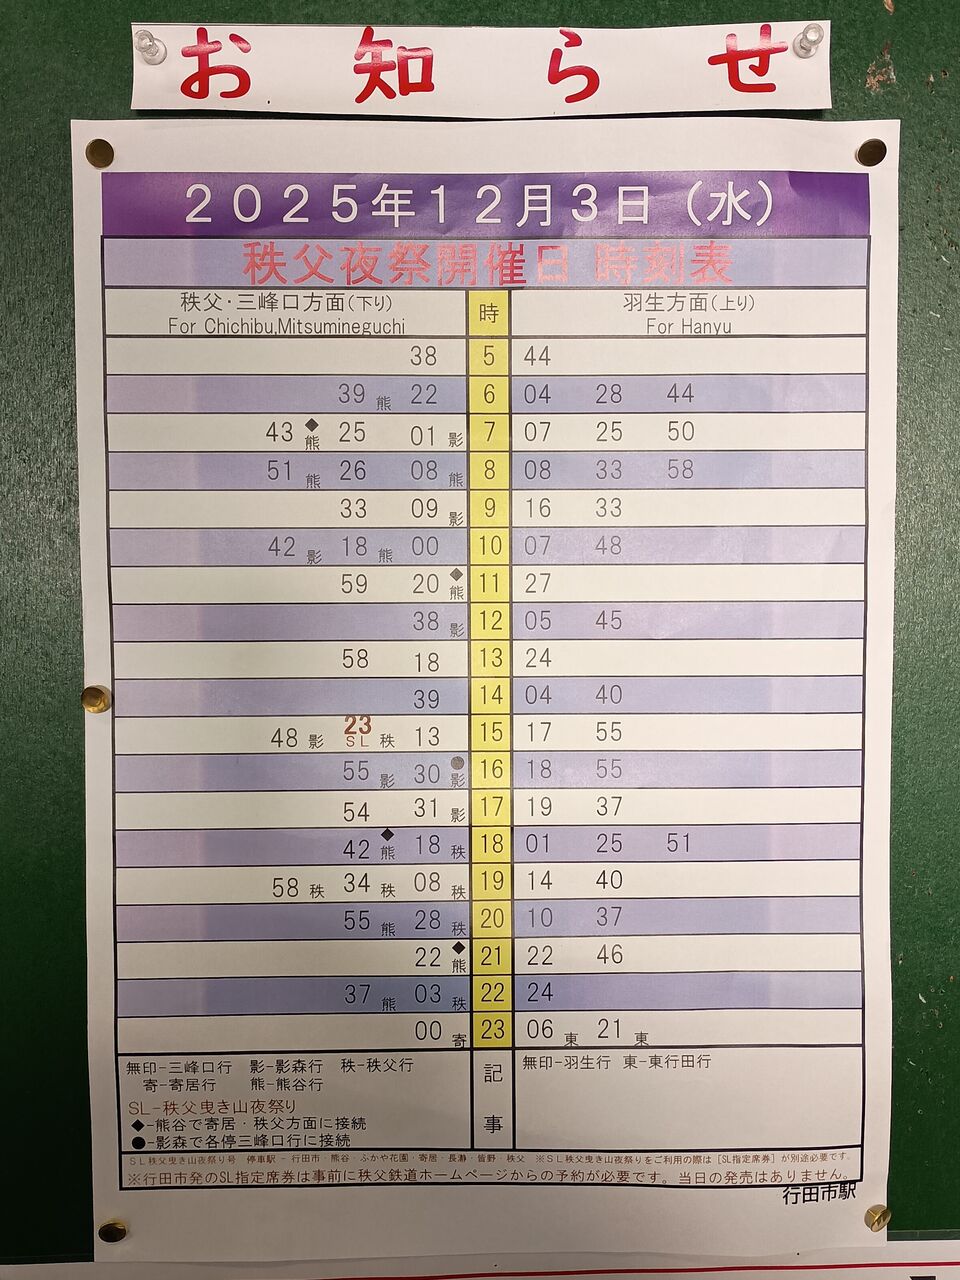 お知らせ
2025年12月3日（水）
秩父夜祭開催日 時刻表
秩父・三峰口方面(下り) 時 羽生方面(上り)
For Chichibu,Mitsumineguchi For Hanyu
38 5 44
39 熊 22 6 04 28 44
43 ◆熊 25 01 影 7 07 25 50
51 熊 26 08 熊 8 08 33 58
33 09 影 9 16 33
42 影 18 熊 00 10 07 48
59 20 ◆熊 11 27
38 影 12 05 45
58 18 13 24
39 14 04 40
48 影 23 SL 秩 13 15 17 55
55 影 30 ●影 16 18 55
54 31 影 17 19 37
42 ◆熊 18 秩 18 01 25 51
58 秩 34 秩 08 秩 19 14 40
55 熊 28 秩 20 10 37
22 ◆熊 21 22 46
37 熊 03 秩 22 24
00 寄 23 06 東 21 東
無印-三峰口行 影-影森行 秩-秩父行
寄-寄居行 熊-熊谷行
SL-秩父曳き山夜祭り
◆-熊谷で寄居・秩父方面に接続
●-影森で各停三峰口行に接続
記事
無印-羽生行 東-東行田行
SL秩父曳き山夜祭り号 停車駅 - 行田市・熊谷・ふかや花園・寄居・長瀞・皆野・秩父 ※SL秩父曳き山夜祭りをご利用の際は［SL指定席券］が別途必要です。
※行田市発のSL指定席券は事前に秩父鉄道ホームページからの予約が必要です。当日の発売はありません。
行田市駅